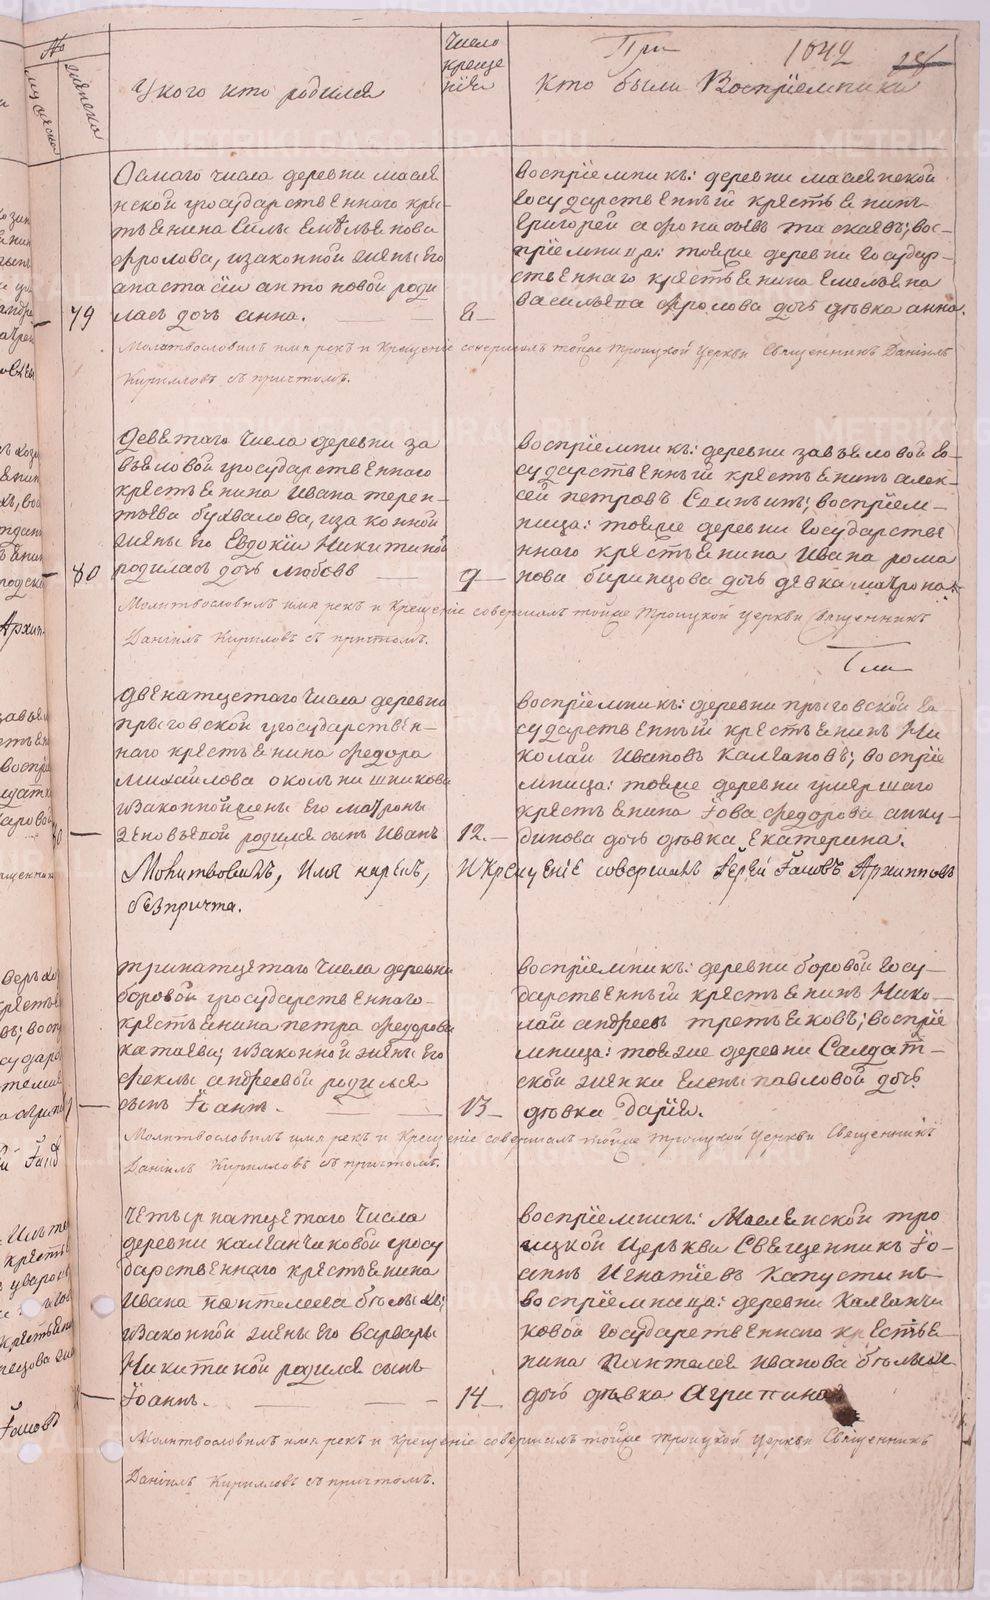 №
женска
У кого кто родился
Число
креще
нiя
При
1042
Кто были Воспрiемники
Осмаго числа деревни маслен
нской государственнаго кре
стьенина Силы Емельенова
Фролова, изаконной жены его
анастасiи антоновой роди
79 лась дочь анна. 8
воспрiемникъ: деревни масленской
государственный крестьенинъ
Григорей афонасьевъ; вос-
прiемница: тоеже деревни государ-
ственнаго крестьенина Емельена
васильева Фролова дочь девка анна.
Молитвословилъ имя рекъ и Крещенiе совершалъ тойже троицкой церкви Священникъ Данiилъ
Кирилловъ съ причтомъ.
Деветаго числа деревни за
вьеловой государственнаго
крестьенина Ивана терен-
тьева бухвалова, изаконной
жены его Евдокiи Никитиной
80 родилась дочь любовь 9
воспрiемникъ: деревни завьеловой го-
сударственный крестьенинъ алек-
сей петровъ; воспрiем-
ница: тоеже деревни государстве
ннаго крестьенина Ивана рома
нова биринцова дочь девка матрона
Молитвословилъ имя рекъ и Крещенiе совершалъ тойже троицкой церкви Священникъ
Данiилъ Кириловъ съ причтомъ.
двенатцетаго числа деревни
прыговской государствен-
наго крестьенина федора
михайлова околнишникова
изаконной жены его матроны
зеновьевой родился сынъ Иванъ 12.
воспрiемникъ: деревни прыговской го
сударственный крестьенинъ Ни
колай Ивановъ Калгановъ; воспрiе
мница: тоеже деревни умершаго
крестьенина Iова федорова анку-
динова дочь девка Екатерина.
Молитвовилъ, Имя нарекъ, И Крещенiе совершилъ Iерей Iаковъ Архипповъ
безпричта.
тринатцетаго числа деревни
боровой государственнаго
крестьенина петра федорова
катаева, изаконной жены его
феклы андреевой родился
сынъ Iоаннъ. 13
воспрiемникъ: деревни боровой госу-
дарственный крестьенинъ Нико-
лай андреевъ третьековъ; воспрiе
мница: тоеже деревни Салдат-
ской женки Елены павловой дочь
девка Дарiя.
Молитвословилъ имя рекъ и Крещенiе совершалъ тойже троицкой церкви Священникъ
Данiилъ Кирилловъ съ причтомъ.
четырнатцетаго числа
деревни калганчиковой госу
дарственнаго крестьенина
Ивана пантелеева белых;
изаконной жены его варвары
Никитиной родился сынъ
Iоаннъ. 14
воспрiемникъ: Масленской тро
ицкой церкви Свещенникъ Iо-
аннъ Игнатiевъ Капустинъ
воспрiемница: деревни Калганчи
ковой государственнаго крестье-
нина Пантелея иванова белых
дочь девка Агрипина
Молитвословилъ имя рекъ и Крещенiе совершалъ тойже троицкой церкви Священникъ
Данiилъ Кирилловъ съ причтомъ.
METRIKI.GASO-URAL.RU